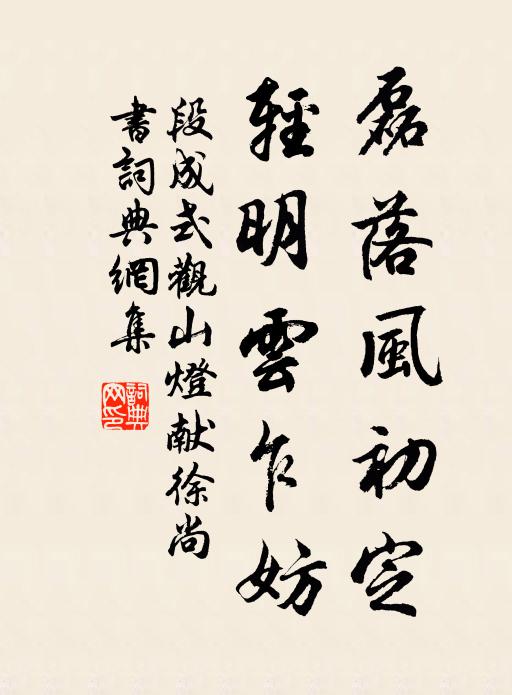 磊落風初定
輕明雲乍妨
段成式觀山燈献徐尚
書詞典網集
詞典網印